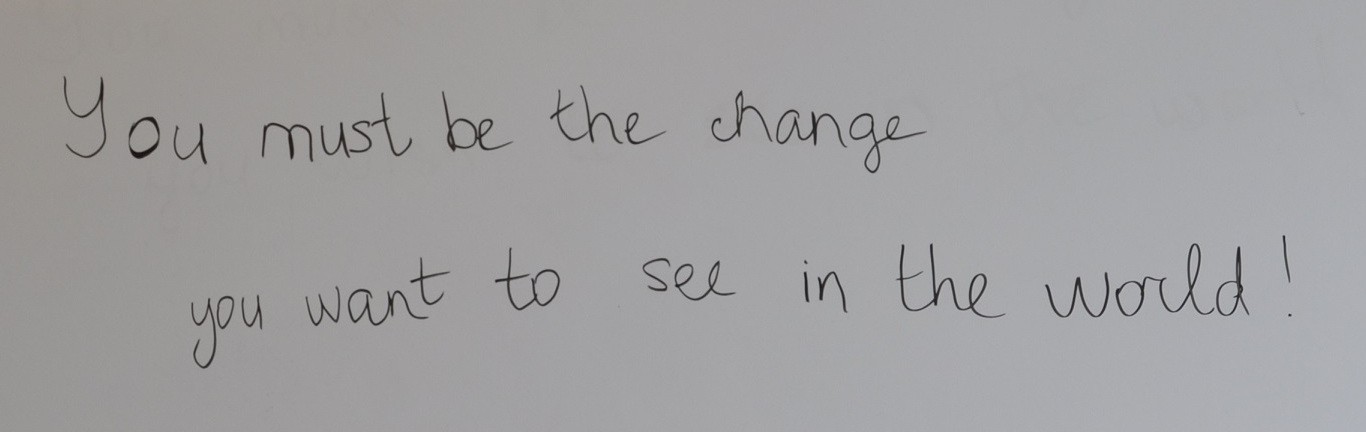 You must be the change
you want to see in the world!